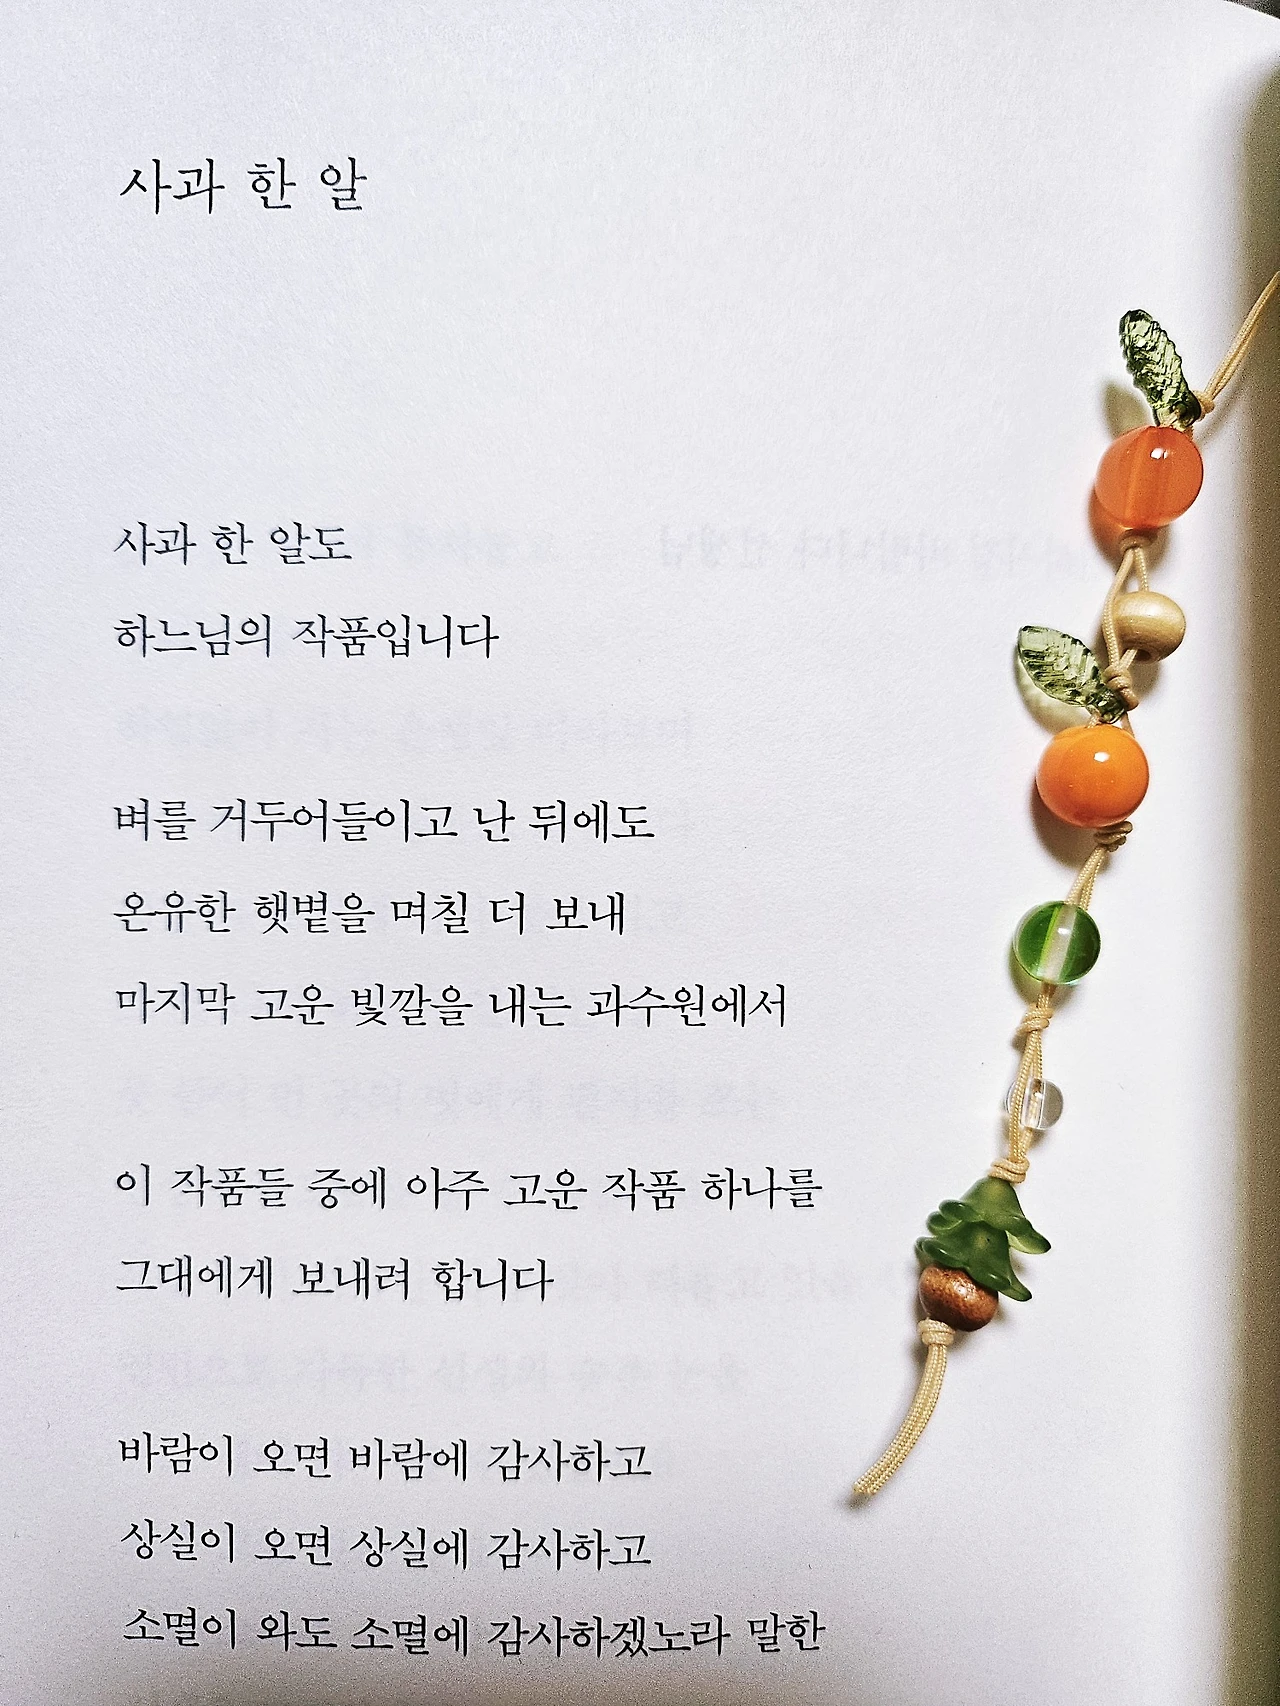 사과 한 알
사과 한 알도
하느님의 작품입니다
벼를 거두어들이고 난 뒤에도
온유한 햇볕을 며칠 더 보내
마지막 고운 빛깔을 내는 과수원에서
이 작품들 중에 아주 고운 작품 하나를
그대에게 보내려 합니다
바람이 오면 바람에 감사하고
상실이 오면 상실에 감사하고
소멸이 와도 소멸에 감사하겠노라 말한